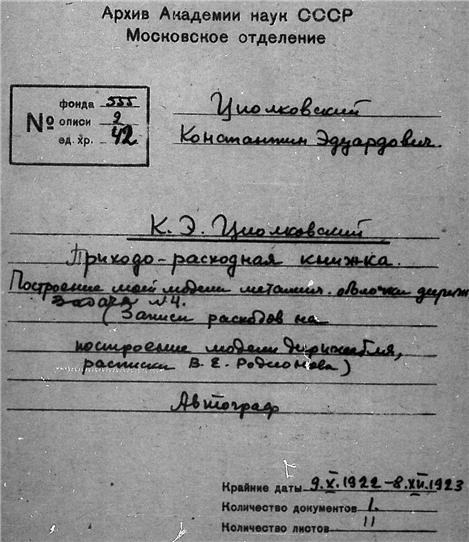 Архив Академии наук СССР
Московское отделение
№
фонда 555
описи 2
ед. хр. 42
Циолковский
Константин Эдуардович.
К. Э. Циолковский
Приходо-расходная книжка.
Построение моей модели металич. оболочки дириж
Задача №4.
(Записи расходов на
построение модели дирижабля,
расписки В. Е. Родионова)
Автограф
Крайние даты 9.X.1922-8.XII.1923
Количество документов 1.
Количество листов 11